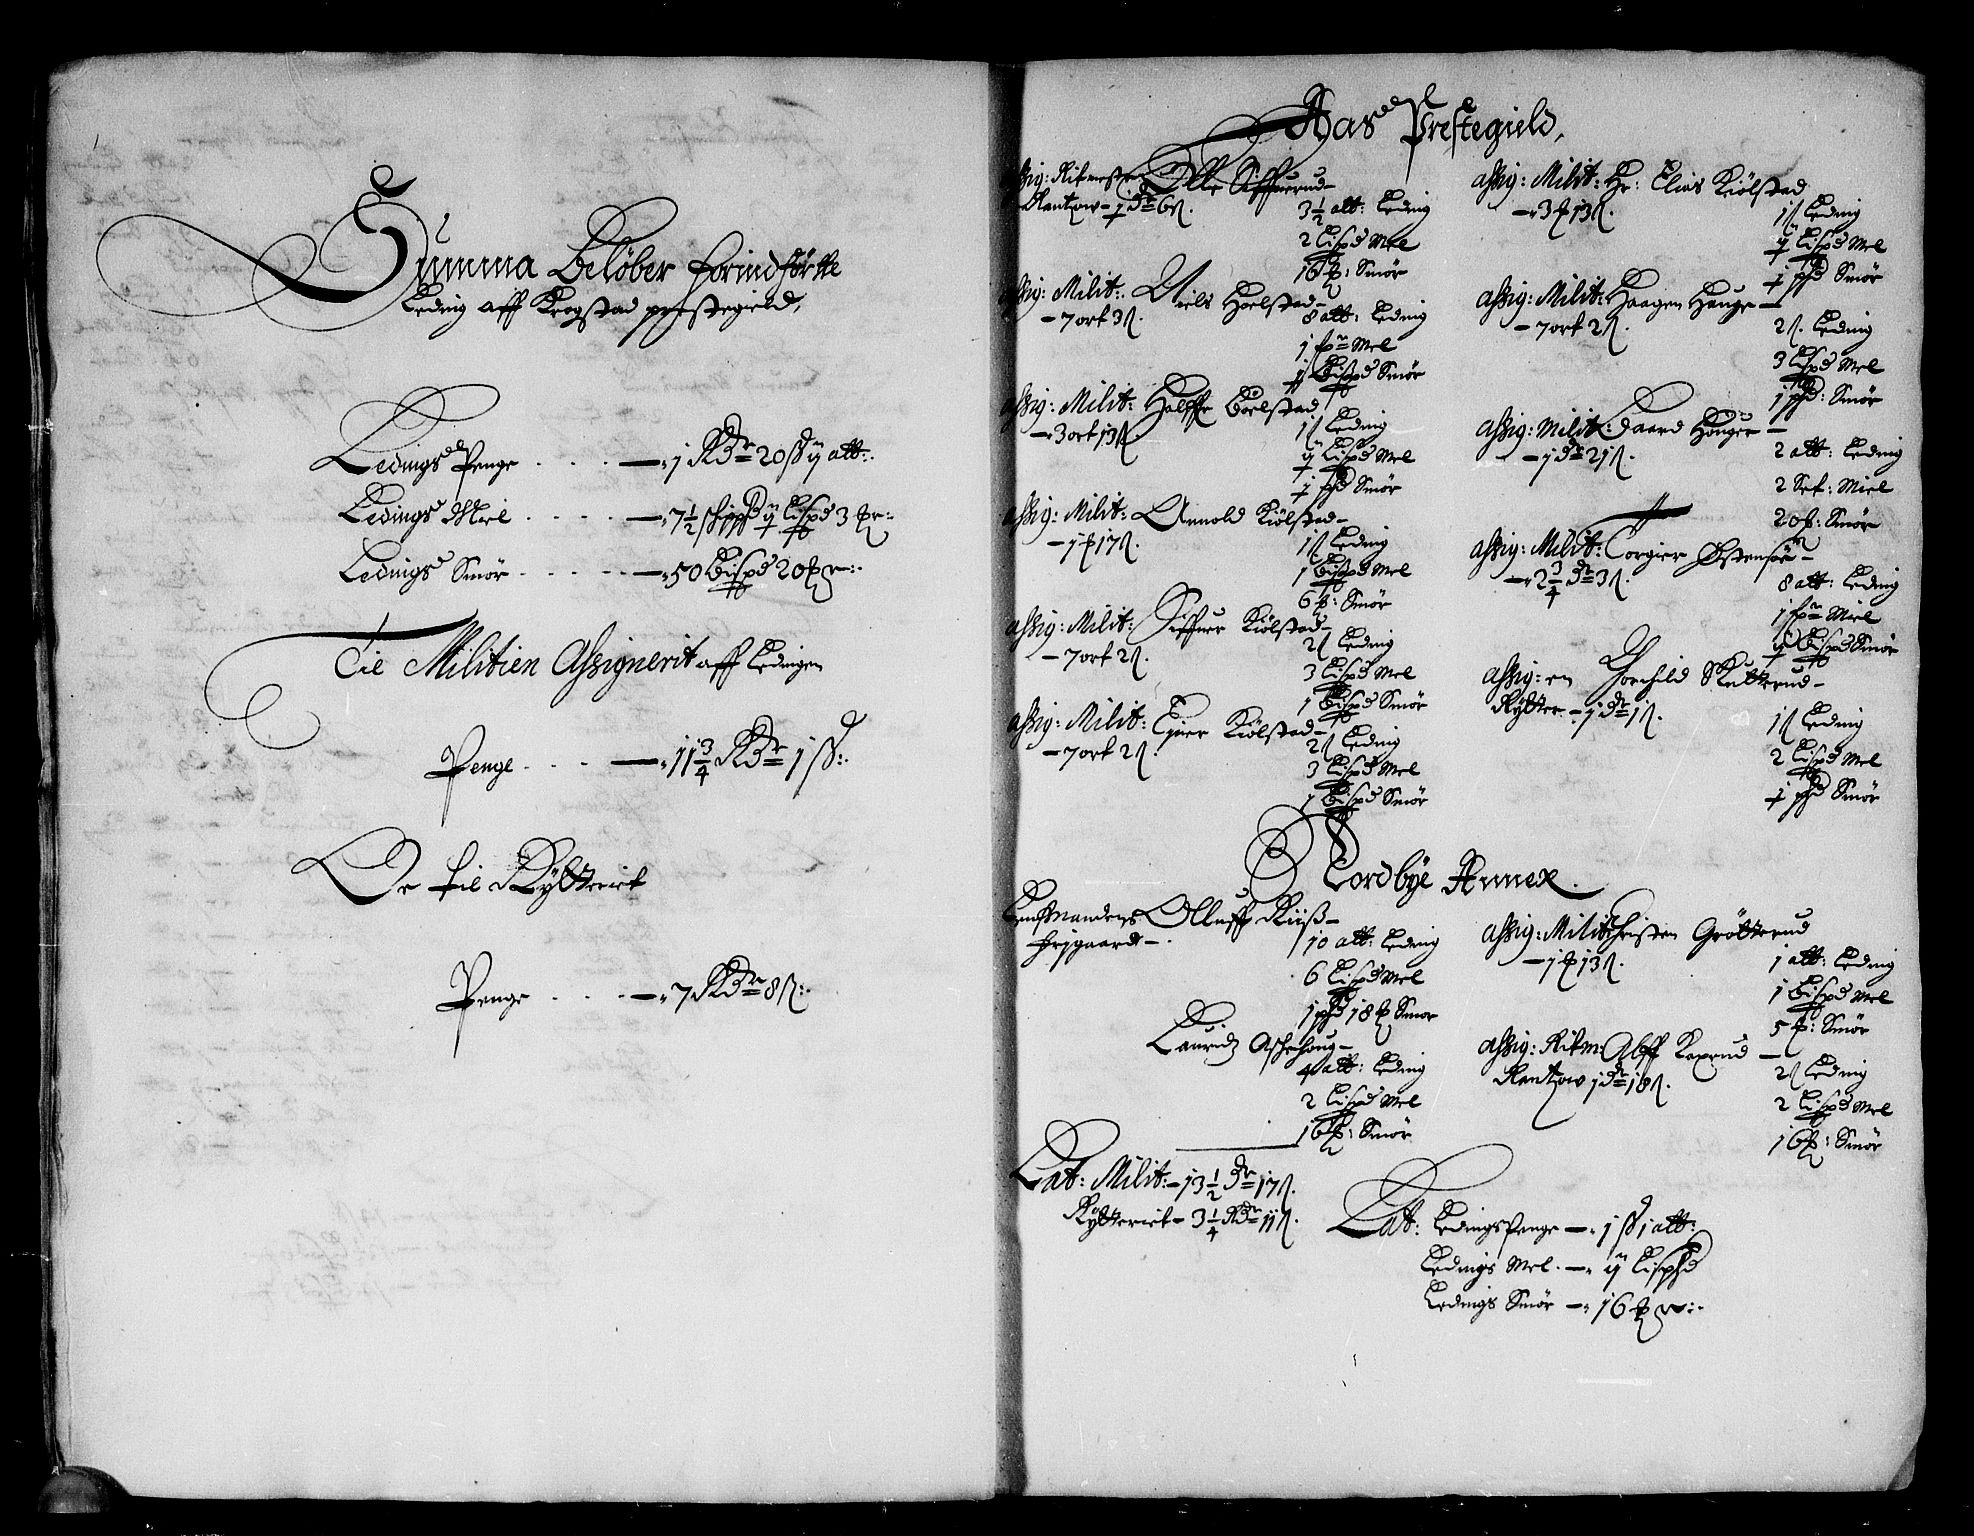 Summa Beløber forindførtte
Leding aff Krogstad prestegield,
Ledings Penge . . . . — 1 Rdr 20 ß ij alb:
Ledings Meel . . . . — 7½ schippd ij Lispd 3 pr:
Ledings Smør . . . . — 50 Bispd 20 pr:
Til Militien Assignerit aff Ledingen
Penge . . . . — 11¾ Rdr 1 ß:
De til Rytteriet
Penge . . . . — 7 Rdr 8 ß:
Aas Prestegield,
Assig: Ritmester Olle Siffuerud –
Rantzow – 1 dr 6 ß.
3½ alb: Leding
2 Lispd Mel
16 p: Smør
Assig: Milit: Niels Hoelstad –
– 7 ort 3 ß.
8 alb: Leding
1 fr Mel
1 Bispd Smør
Assig: Milit: Halffr Boelstad
– 3 ort 13 ß.
1 ß Leding
ij Lispd Mel
1 phd Smør
Assig: Milit: Arnold Kiølstad –
– 1 p 17 ß.
1 ß Leding
1 Bispd Mel
6 p: Smør
Assig: Milit: Siffuer Kiølstad –
– 7 ort 2 ß.
2 ß Leding
3 Lispd Mel
1 Bispd Smør
Assig: Milit: Ejuer Kiølstad –
– 7 ort 2 ß.
2 ß Leding
3 Lispd Mel
1 Bispd Smør
Assig: Milit: Hr: Elias Kiølstad
– 3 p 13 ß.
1 ß Leding
ij Lispd Mel
1 phd Smør
Assig: Milit: Haagen Hauge –
– 7 ort 2 ß.
2 ß. Leding
3 Lispd Mel
1 phd: Smør
Assig: Milit: Gaard Houger –
– 1 dr 21 ß.
2 alb: Leding
2 Set: Miel
20 p: Smør
Assig: Milit: Torgier Østensøe –
– 2¾ dr 3 ß.
8 alb: Leding
1 fr Miel
ij Bispd Smør
Assig: en Thorchild Skutterud –
Rytter – 1 dr 1 ß.
1 ß Leding
2 Lispd Mel
1 phd Smør
Nordbye Annex.
Lensmandens Olluff Riiß –
frjgaard – .
10 alb: Leding
6 Lispd Mel
1 phd 18 p Smør
Lauridz Aschehoug –
4 alb: Leding
2 Lispd Mel
16 p: Smør
Assig: Milit: Christen Grøtterud
– 1 p 13 ß.
1 alb: Leding
1 Bispd Mel
5 p: Smør
Assig: Ritm: Alff Kaxrud –
Rantzow 1 dr 18 ß.
2 ß Leding
2 Lispd Mel
16 p: Smør
Lat: Milit: – 13½ dr 17 ß.
Rytteriet – 3¼ Rdr 11 ß.
Lat: Ledings Penge – 1 ß 1 alb:
Ledings Mel. – ij Lisphd
Ledings Smør – 16 pr: